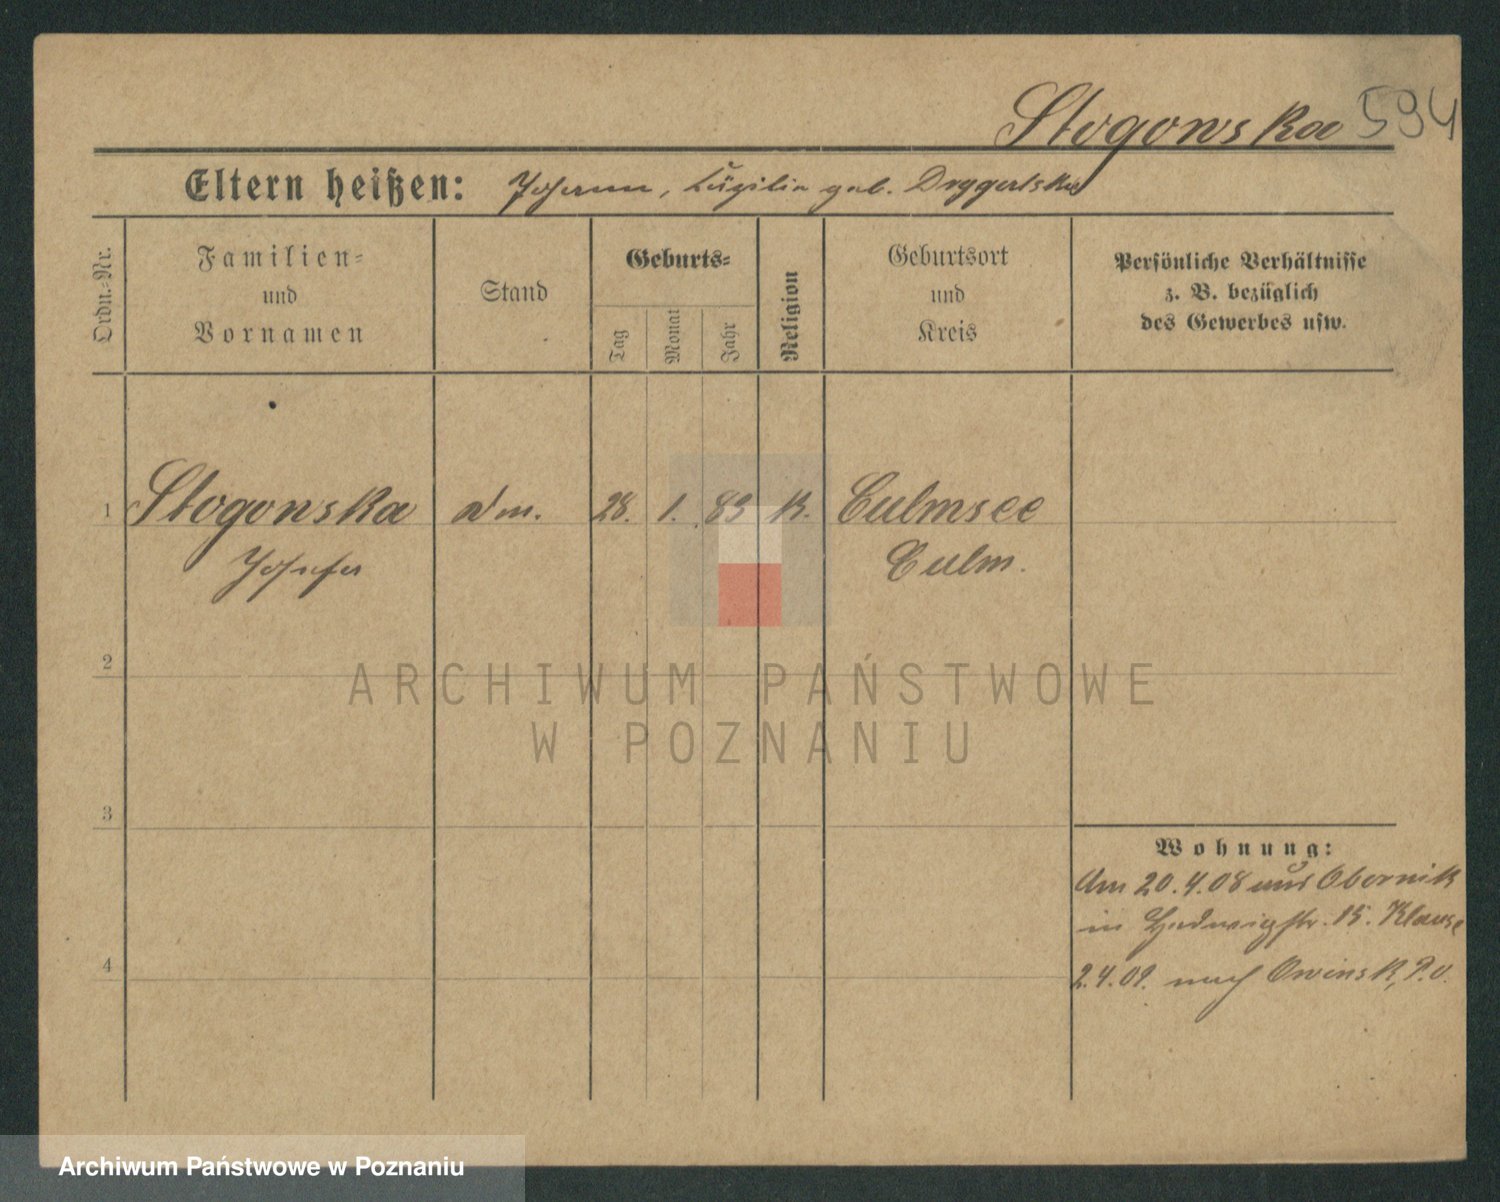 Stogowska 594
Eltern heißen: Johann, Cäzilie geb. Dryggalska
Ordn.-Nr.
Familien-
und
Vornamen
Stand
Geburts-
Tag
Monat
Jahr
Religion
Geburtsort
und
Kreis
Persönliche Verhältnisse
z. B. bezüglich
des Gewerbes usw.
1 Stogowska 28. 1. 83 K. Culmsee
Josefa Culm.
2
ARCHIWUM PAŃSTWOWE
W POZNANIU
3
Wohnung:
Am 20.4.08 aus Obornik
in Hedwigstr. 15. Klause
4
2.4.09. nach Owinsk,
Archiwum Państwowe w Poznaniu